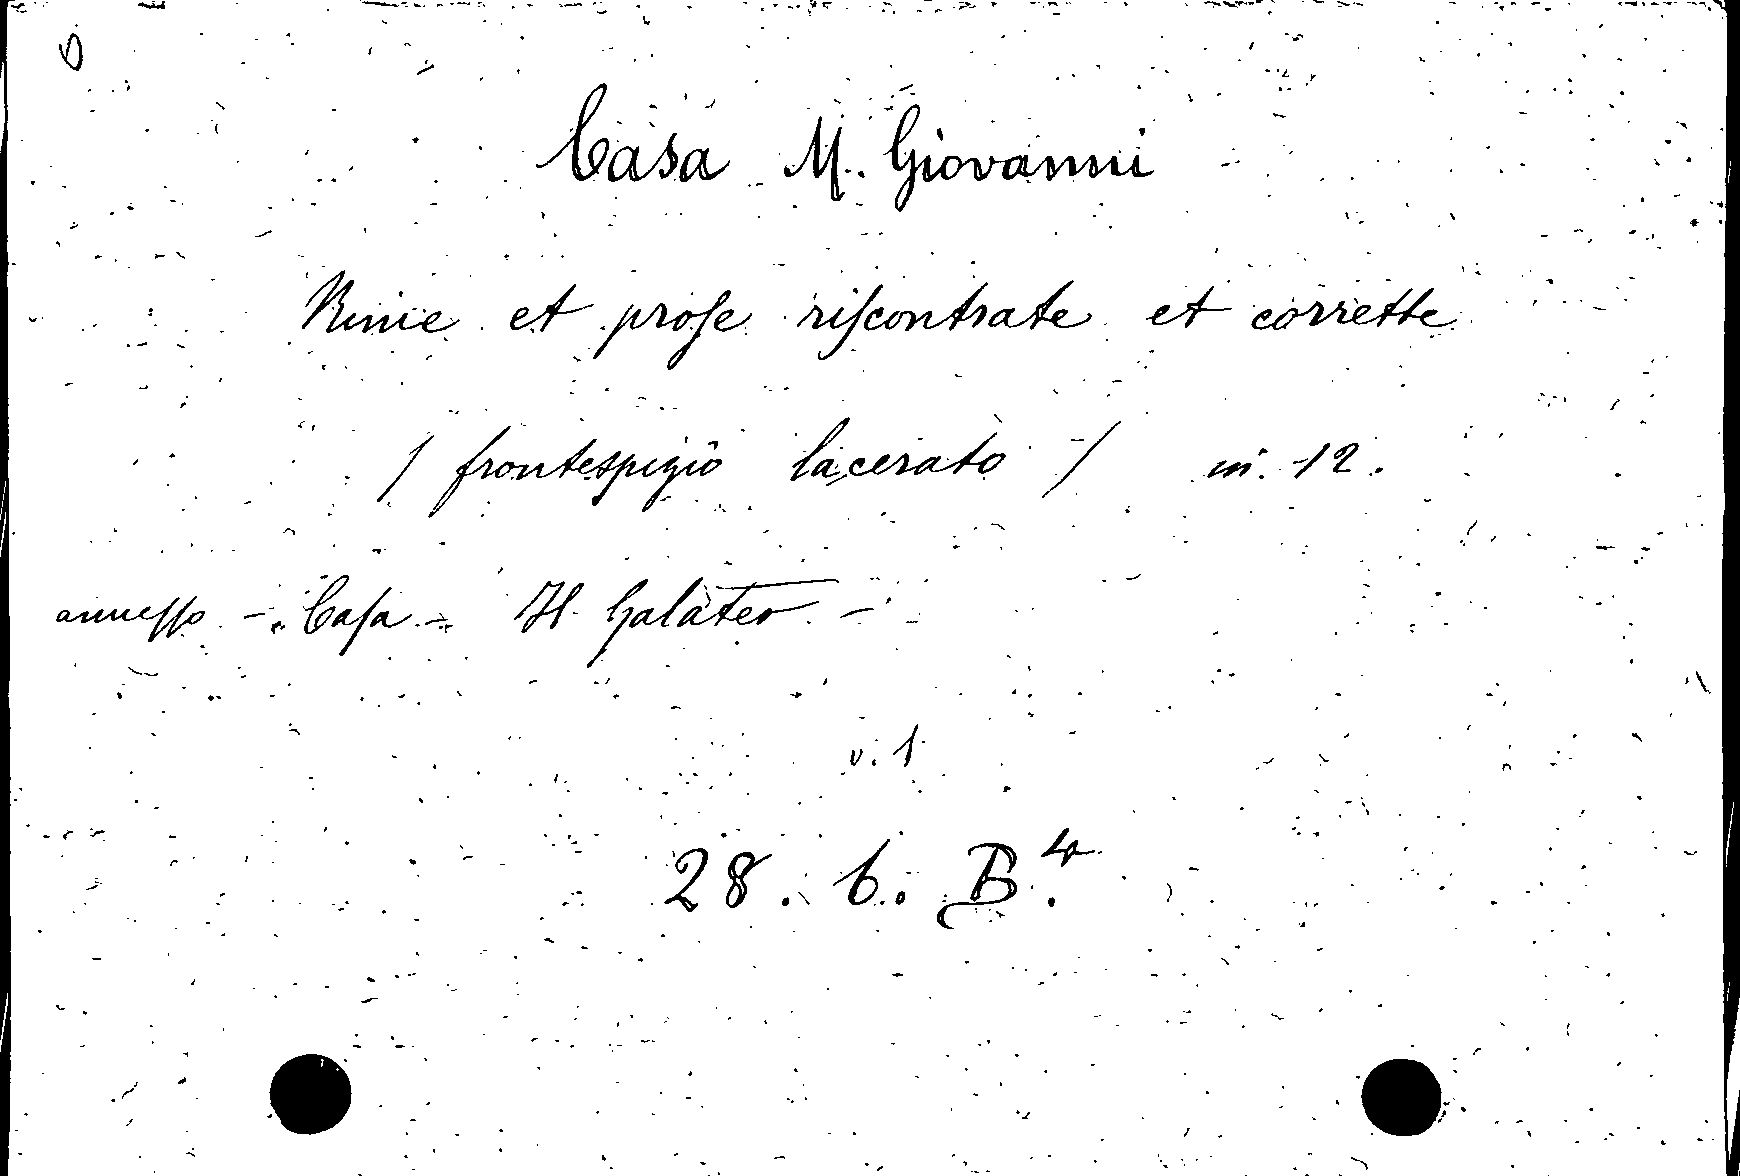 Casa M. Giovanni
Rime et proſe riſcontrate et corrette
/ frontespizio lacerato / in. 12.
annesſo - Caſa - Il Galateo -
v. 1
28. 6. B⁴.